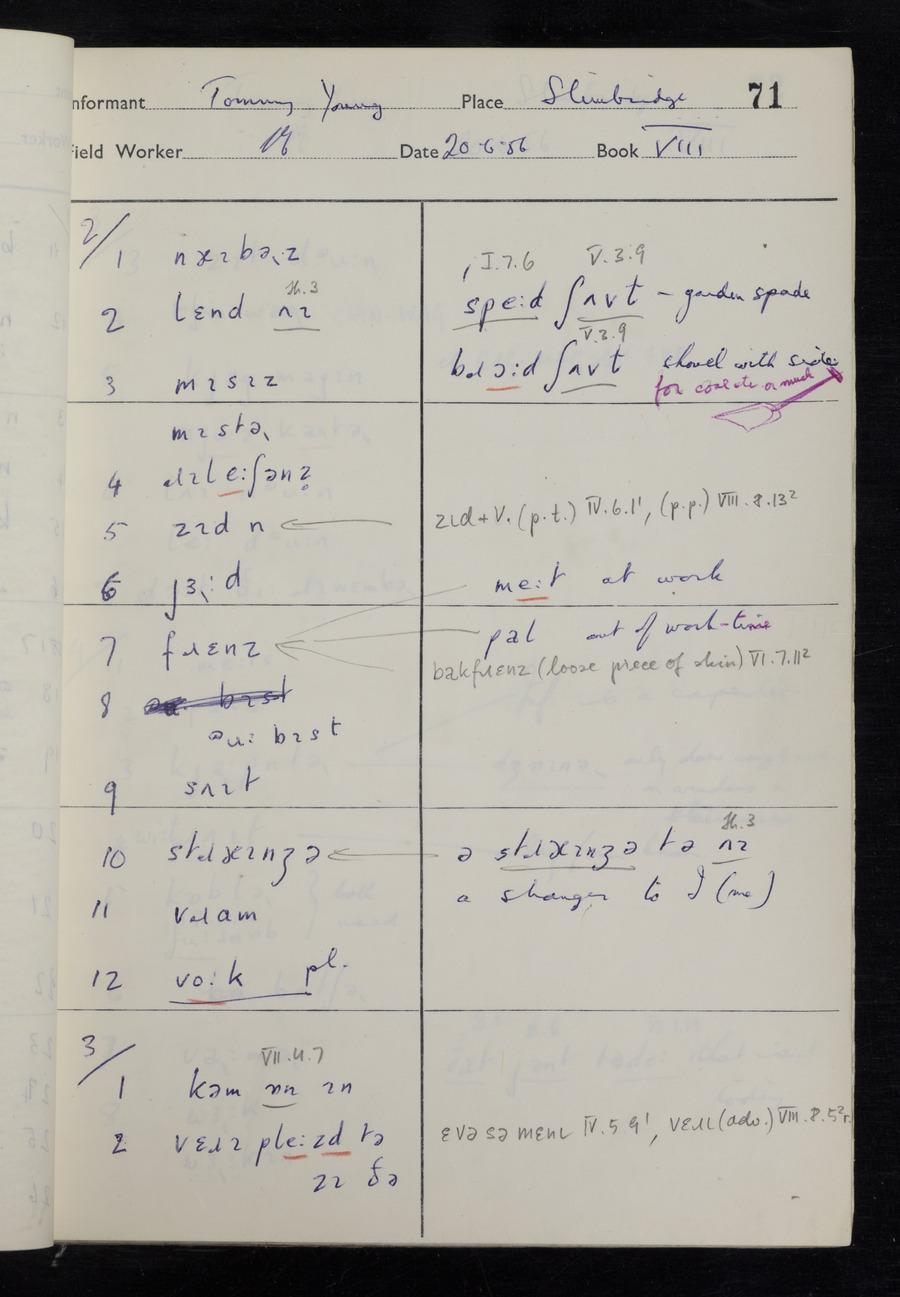 Informant Tommy Young Place Slimbridge 71
Field Worker Date 20·6·56 Book VIII
2/
1 næɪbəɻz
I.7.6 V.3.9
2 lɛnd ʌɪ
speːd ʃʌvɫ – garden spade
V.3.9
bɹɔːd ʃʌvɫ shovel with sides
for coal etc or muck
3 mɪsɪz
mɪstəɻ
4 ɹɪleːʃənz
5 zɪd n
zɪd + V. (p.t.) IV.6.1¹, (p.p.) VIII.8.13²
6 jɜɻːd
meːt at work
7 fɹɛnz
pal out of work-time
bakfɹɛnz (loose piece of skin) VI.7.11²
8 bɪst
əuː bɪst
9 sʌɪt
10 stɹæɪnʒə
ə stɹæɪnʒə tə ʌɪ
a stranger to I (me)
11 vɹam
12 voːk pl.
3/
VII.4.7
1 kəm ɪn
2 vɛɹɪ pleːzd tə
zɪ ðə
ɛvə sə mɛnɪ IV.5.9¹, vɛɹɪ (adv.) VIII.8.5²r.